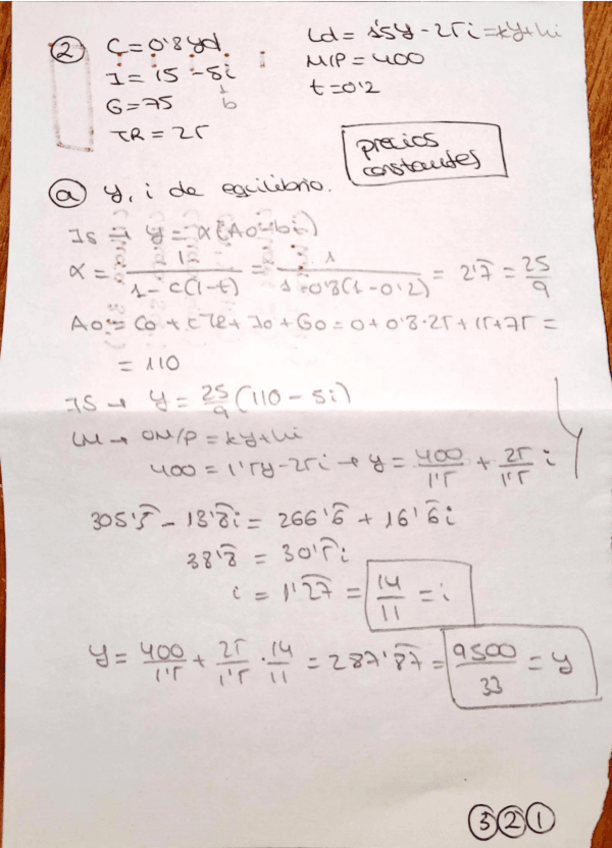 ② C = 0'8 yd
I = 15 - 5i
b
G = 75
TR = 25
Ld = 1'5y - 25i = ky + hi
M/P = 400
t = 0'2
precios
constantes
ⓐ y, i de equilibrio.
IS → y = α(A0 - bi)
α = 1/(1 - c(1-t)) = 1/(1 - 0'8(1 - 0'2)) = 2'7̂ = 25/9
A0 = C0 + cTR + I0 + G0 = 0 + 0'8·25 + 15 + 75 =
= 110
IS → y = 25/9 (110 - 5i)
LM → M/P = ky + hi
400 = 1'5y - 25i → y = 400/1'5 + 25/1'5 i
305'5̂ - 13'8̂i = 266'6̂ + 16'6̂i
38'8̂ = 30'5̂i
i = 1'27̂ = 14/11 = i
y = 400/1'5 + 25/1'5 · 14/11 = 287'87̂ = 9500/33 = y
③②①